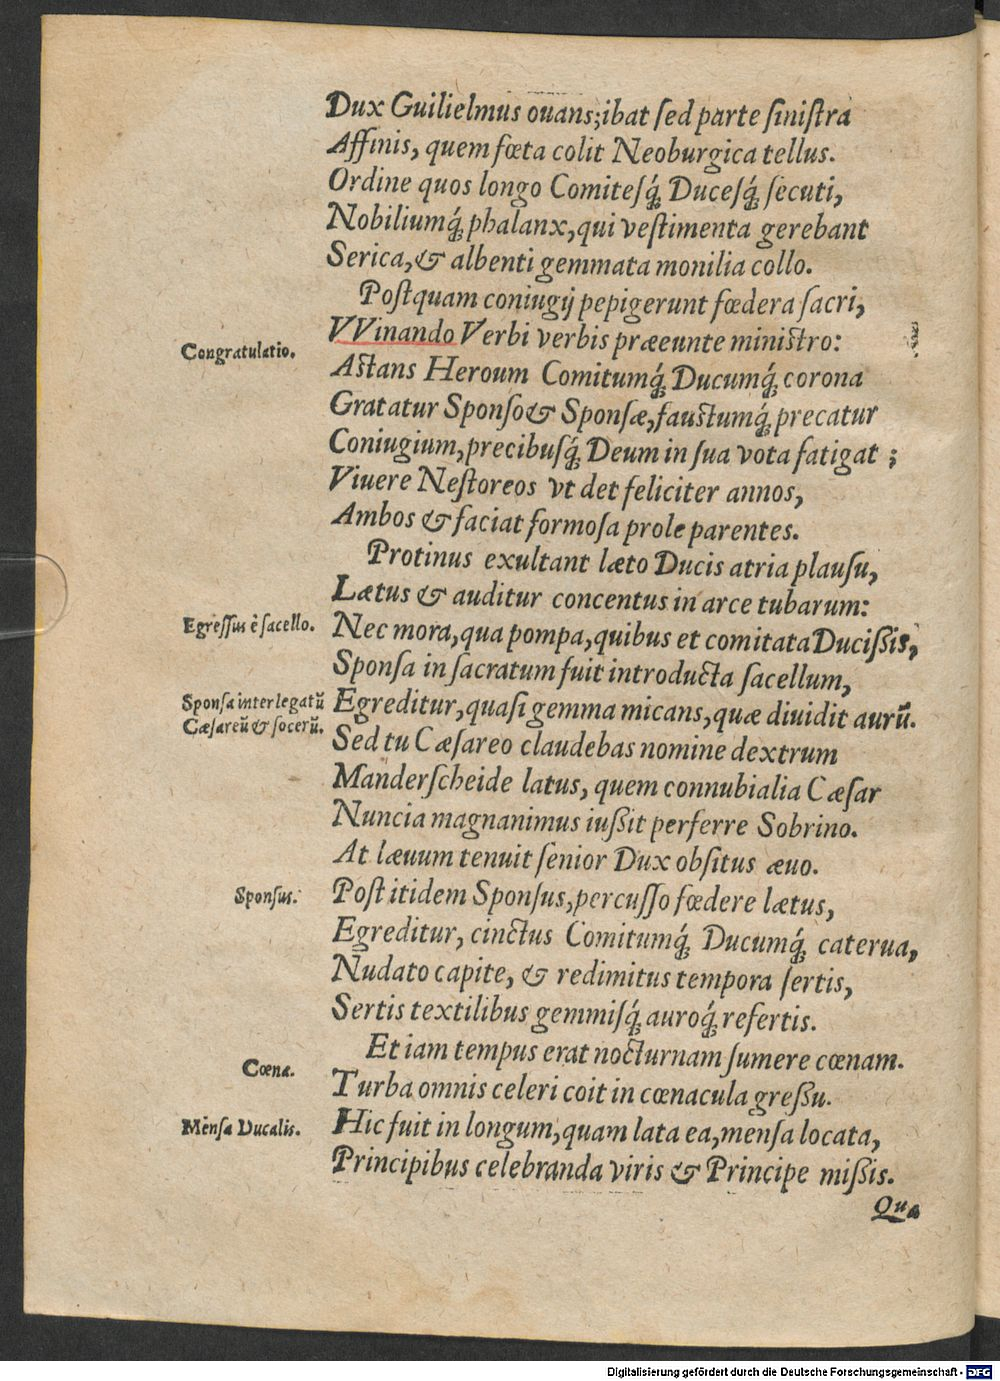 Dux Guilielmus ouans;ibat ſed parte ſiniſtra
Affinis, quem fœta colit Neoburgica tellus.
Ordine quos longo Comiteſq́ꝫ Duceſq́ꝫ ſecuti,
Nobiliumq́ꝫ phalanx,qui veſtimenta gerebant
Serica,& albenti gemmata monilia collo.
Poſtquam coniugij pepigerunt fœdera ſacri,
VVinando Verbi verbis præeunte miniſtro:
Congratulatio.
Aſtans Heroum Comitumq́ꝫ Ducumq́ꝫ corona
Gratatur Sponſo& Sponſæ,fauſtumq́ꝫ precatur
Coniugium,precibuſq́ꝫ Deum in ſua vota fatigat ;
Viuere Neſtoreos vt det feliciter annos,
Ambos & faciat formoſa prole parentes.
Protinus exultant læto Ducis atria plauſu,
Lætus & auditur concentus in arce tubarum:
Egreſſus è ſacello.
Nec mora,qua pompa,quibus et comitata Duciſſis,
Sponſa in ſacratum fuit introducta ſacellum,
Sponſa inter legatũ
Cæſareũ & ſocerũ.
Egreditur,quaſi gemma micans,quæ diuidit aurũ.
Sed tu Cæſareo claudebas nomine dextrum
Manderſcheide latus, quem connubialia Cæſar
Nuncia magnanimus iuſſit perferre Sobrino.
At læuum tenuit ſenior Dux obſitus æuo.
Sponſus.
Poſt itidem Sponſus,percuſſo fœdere lætus,
Egreditur, cinctus Comitumq́ꝫ Ducumq́ꝫ caterua,
Nudato capite, & redimitus tempora ſertis,
Sertis textilibus gemmiſq́ꝫ auroq́ꝫ refertis.
Et iam tempus erat nocturnam ſumere cœnam.
Cœna.
Turba omnis celeri coit in cœnacula greſſu.
Menſa Ducalis.
Hic fuit in longum,quam lata ea,menſa locata,
Principibus celebranda viris & Principe miſſis.
Qua
Digitalisierung gefördert durch die Deutsche Forschungsgemeinschaft - DFG